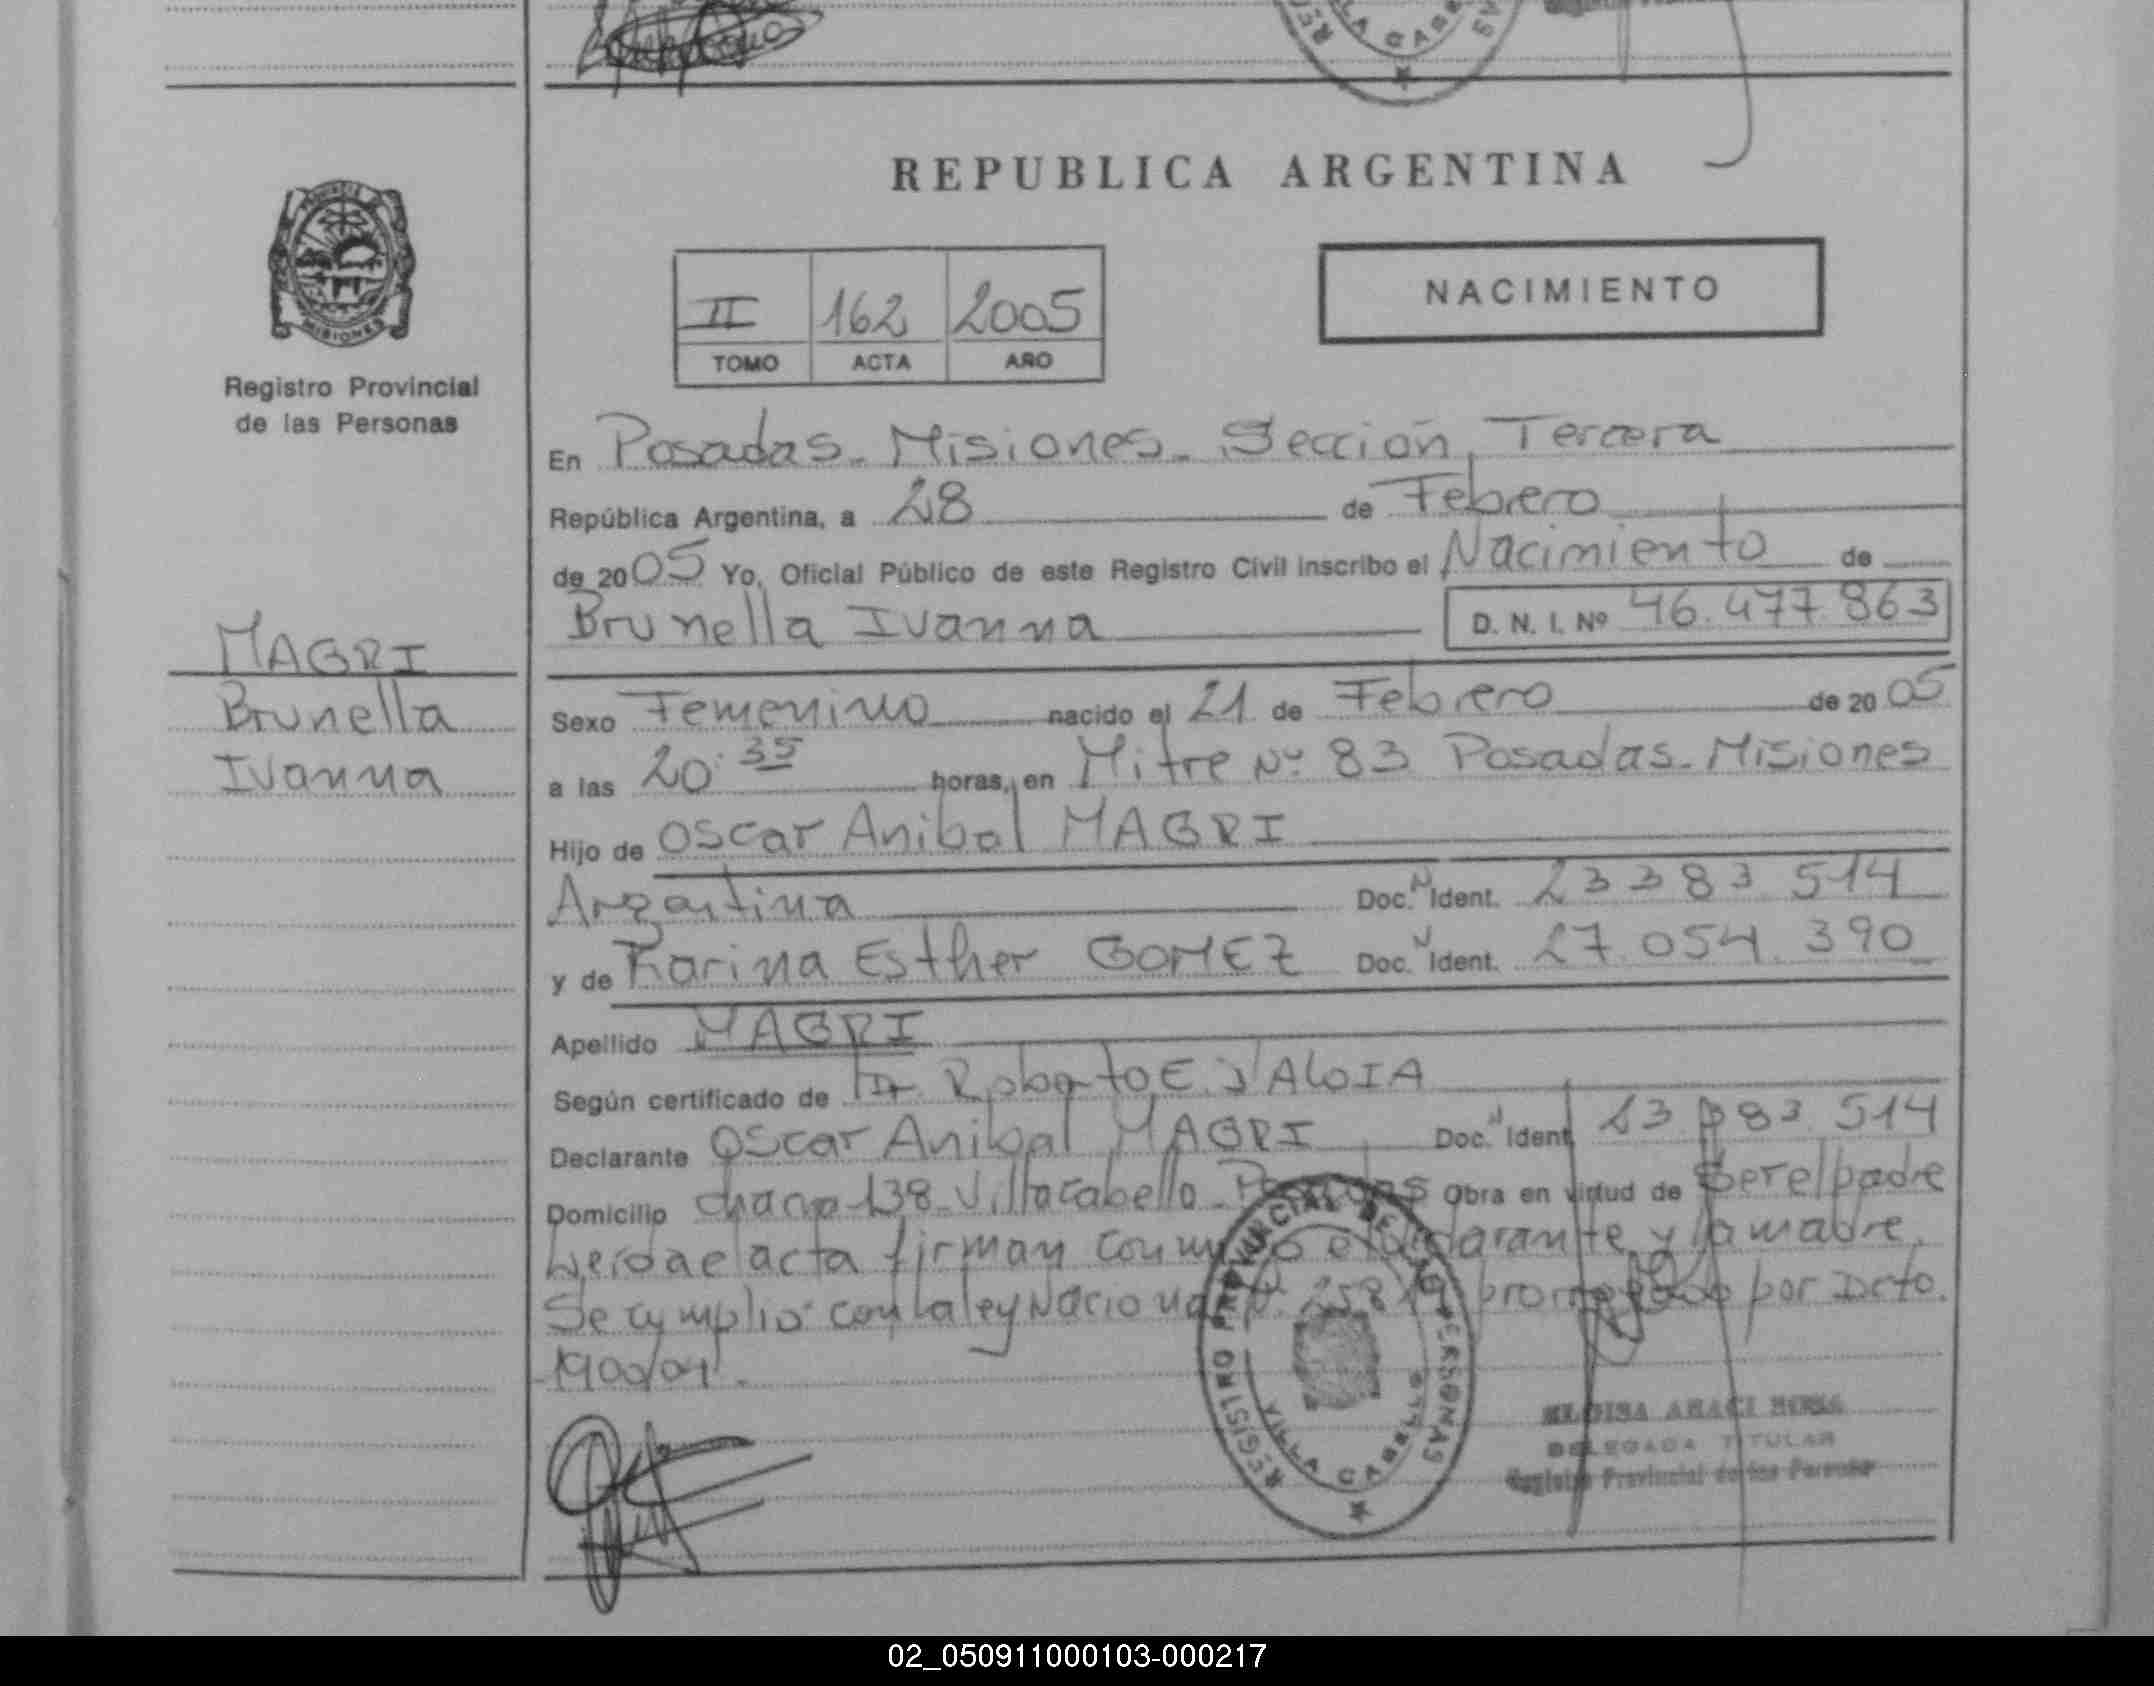 REPUBLICA ARGENTINA
PROVINCIA
MISIONES
Registro Provincial
de las Personas
NACIMIENTO
II 162 2005
TOMO ACTA AÑO
En Posadas - Misiones - Sección Tercera
República Argentina, a 28 de Febrero
de 2005 Yo, Oficial Público de este Registro Civil inscribo el Nacimiento de
Brunella Ivanna D. N. I. Nº 46.477.863
MAGRI
Brunella
Ivanna
Sexo Femenino nacido el 21 de Febrero de 2005
a las 20:35 horas, en Mitre Nº 83 Posadas - Misiones
Hijo de Oscar Anibal MAGRI
Argentina Doc. N Ident. 23 383 514
y de Karina Esther GOMEZ Doc. N Ident. 27.054.390
Apellido MAGRI
Según certificado de Dr. Roberto E. D'ALOIA
Declarante Oscar Anibal MAGRI Doc. N Ident. 23.383.514
Domicilio chacra 138 - Villa Cabello - Posadas Obra en virtud de Ser el padre
Leida el acta firman conmigo el declarante y la madre.
Se cumplió con la ley Nacional Nº 25819 promulgado por Dcto.
1900/04.
REGISTRO PROVINCIAL DE LAS PERSONAS
VILLA CABELLO
DELEGADA TITULAR
Registro Provincial de las Personas
02_050911000103-000217